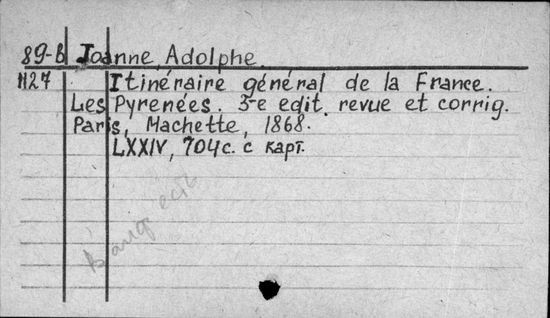 89-B Joanne, Adolphe.
N27 Itinéraire général de la France.
Les Pyrenées. 3-e edit. revue et corrig.
Paris, Machette, 1868.
LXXIV, 704 с. с карт.